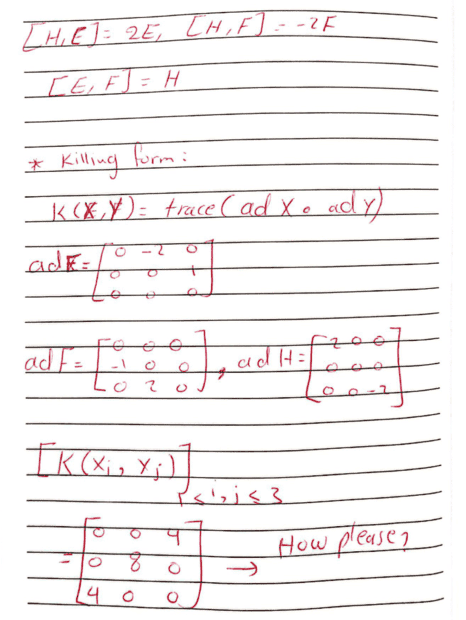 [H,E]= 2E, [H,F] = -2F
[E,F] = H
* Killing form:
K(X,Y)= trace( ad X ∘ ad Y)
adE= [0 -2 0
0 0 1
0 0 0]
ad F= [0 0 0
-1 0 0
0 2 0], ad H= [2 0 0
0 0 0
0 0 -2]
[K(xi, xj)] 1≤i,j≤3
= [0 0 4
0 8 0
4 0 0] → How please?